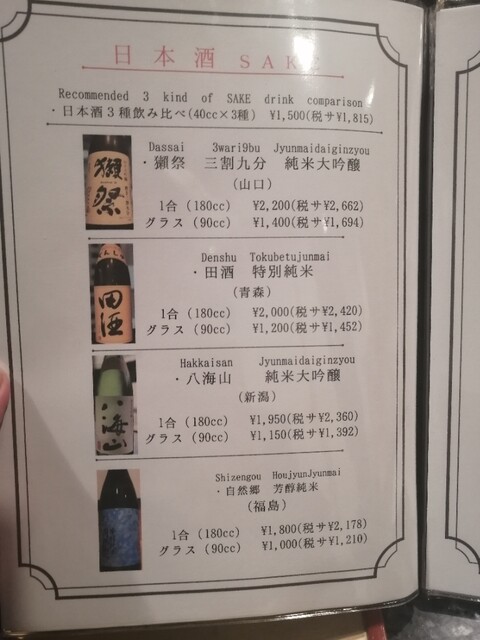 日本酒 SAKE
Recommended 3 kind of SAKE drink comparison
・日本酒3種飲み比べ(40cc×3種) ¥1,500(税サ¥1,815)
Dassai 3wari9bu Jyunmaidaiginzyou
・獺祭 三割九分 純米大吟醸
(山口)
1合 (180cc) ¥2,200(税サ¥2,662)
グラス (90cc) ¥1,400(税サ¥1,694)
獺祭
Denshu Tokubetujunmai
・田酒 特別純米
(青森)
1合 (180cc) ¥2,000(税サ¥2,420)
グラス (90cc) ¥1,200(税サ¥1,452)
田酒
Hakkaisan Jyunmaidaiginzyou
・八海山 純米大吟醸
(新潟)
1合 (180cc) ¥1,950(税サ¥2,360)
グラス (90cc) ¥1,150(税サ¥1,392)
八海山
Shizengou HoujyunJyunmai
・自然郷 芳醇純米
(福島)
1合 (180cc) ¥1,800(税サ¥2,178)
グラス (90cc) ¥1,000(税サ¥1,210)